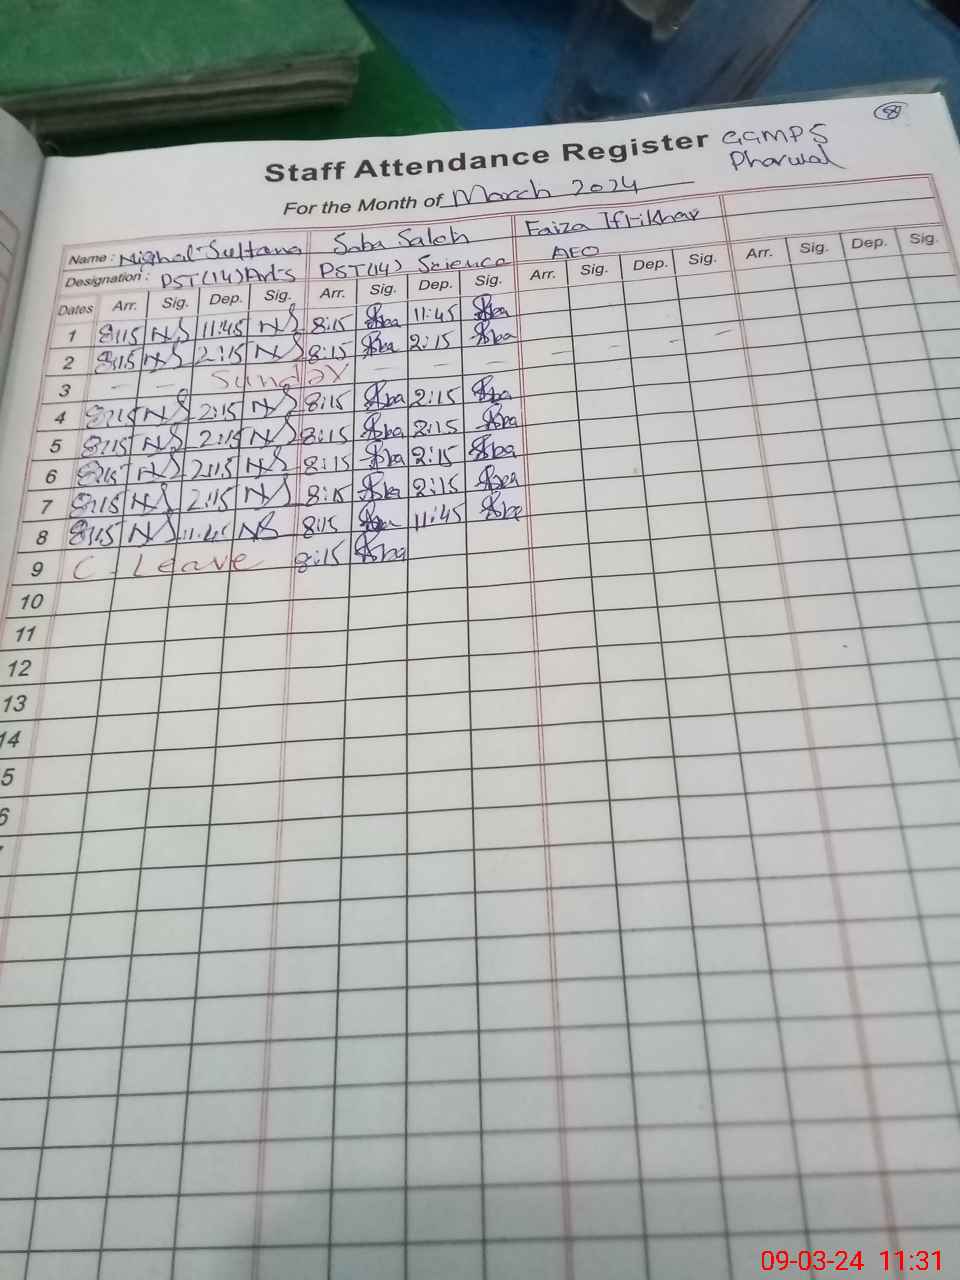 8
Staff Attendance Register GGMPS
Pharwal
For the Month of March 2024
Name: Nighat Sultana Saba Saleh Faiza Iftikhar
Designation: PST(14) Arts PST(14) Science AEO
Dates Arr. Sig. Dep. Sig. Arr. Sig. Dep. Sig. Arr. Sig. Dep. Sig. Arr. Sig. Dep. Sig.
1 8:15 NS 11:45 NS 8:15 Sba 11:45 Sba
2 8:15 NS 2:15 NS 8:15 Sba 2:15 Sba
3 – – Sunday – – – – – – – –
4 8:15 NS 2:15 NS 8:15 Sba 2:15 Sba
5 8:15 NS 2:15 NS 8:15 Sba 2:15 Sba
6 8:15 NS 2:15 NS 8:15 Sba 2:15 Sba
7 8:15 NS 2:15 NS 8:15 Sba 2:15 Sba
8 8:15 NS 11:45 NS 8:15 Sba 11:45 Sba
9 C. Leave 8:15 Sba
10
11
12
13
14
5
6
09-03-24 11:31